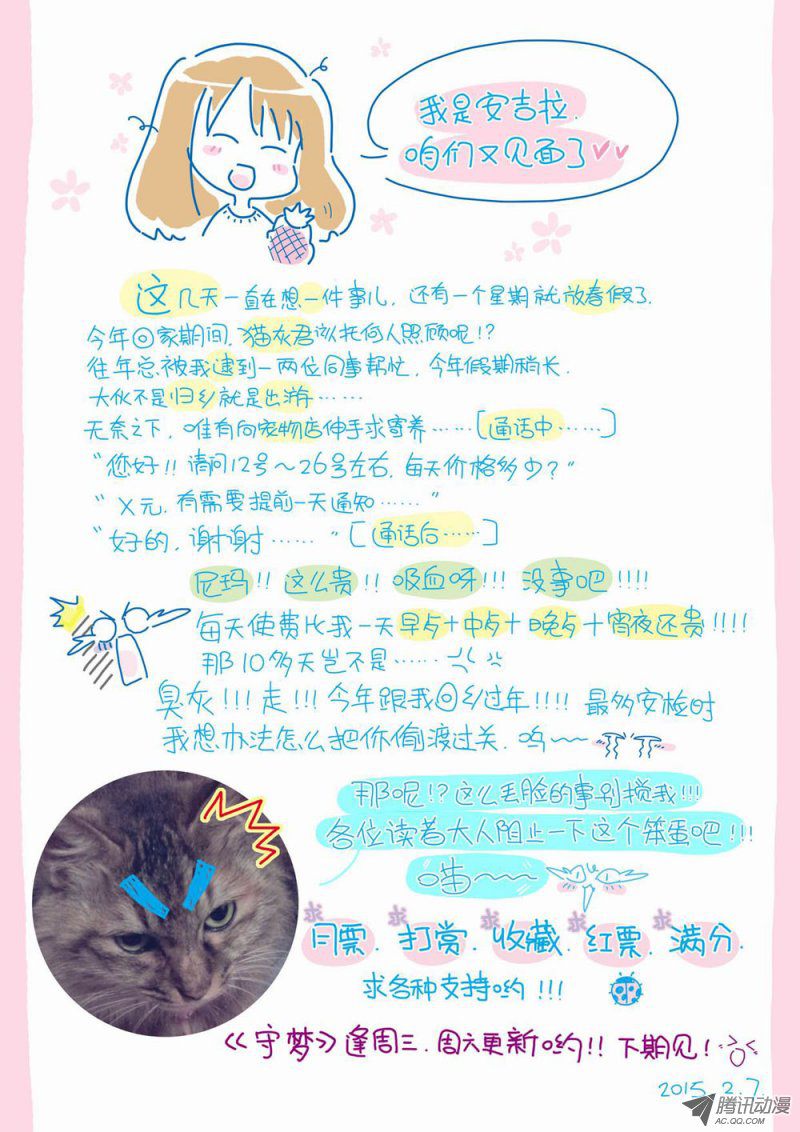 我是安吉拉.
咱们又见面了
这几天一直在想一件事儿, 还有一个星期就放春假了.
今年回家期间, 猫灰君该托何人照顾呢!?
往年总被我逮到一两位同事帮忙, 今年假期稍长.
大伙不是归乡就是出游……
无奈之下, 唯有向宠物店伸手求寄养……[通话中……]
“您好!! 请问12号～26号左右, 每天价格多少?”
“X元, 有需要提前一天通知……”
“好的, 谢谢……” [通话后……]
尼玛!! 这么贵!! 吸血呀!!! 没事吧!!!!
每天使费比我一天早点+中点+晚点+宵夜还贵!!!!
那10多天岂不是……
臭灰!!! 走!!! 今年跟我回乡过年!!!! 最多安检时
我想办法怎么把你偷渡过关. 呜～～
那呢!? 这么丢脸的事别搅我!!!
各位读者大人阻止一下这个笨蛋吧!!!
喵～～～
求月票. 求打赏. 求收藏. 求红票. 求满分.
求各种支持哟!!!
《守梦》逢周三. 周六更新哟!! 下期见!
2015.2.7.
腾讯动漫
AC.QQ.COM